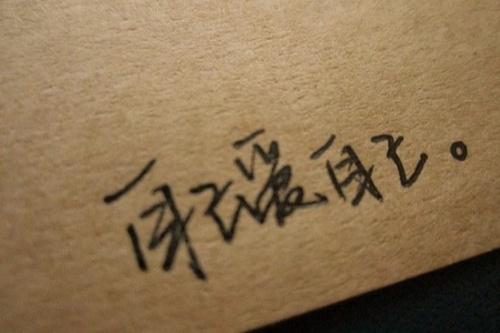 自己爱自己。